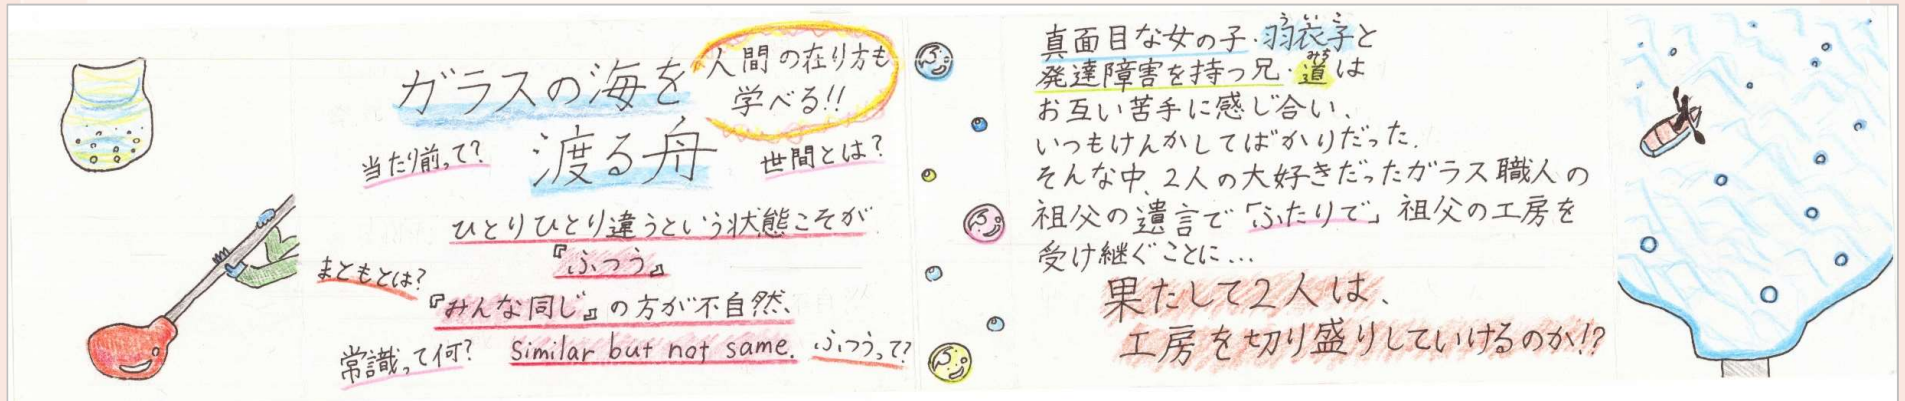 ガラスの海を
渡る舟
人間の在り方も
学べる!!
当たり前って?
世間とは?
ひとりひとり違うという状態こそが
『ふつう』
まともとは?
『みんな同じ』の方が不自然、
常識って何?
Similar but not same.
ふつうって?
真面目な女の子・羽衣子と
ういこ
発達障害を持つ兄・道は
みち
お互い苦手に感じ合い、
いつもけんかしてばかりだった。
そんな中、2人の大好きだったガラス職人の
祖父の遺言で「ふたりで」祖父の工房を
受け継ぐことに…
果たして2人は、
工房を切り盛りしていけるのか!?